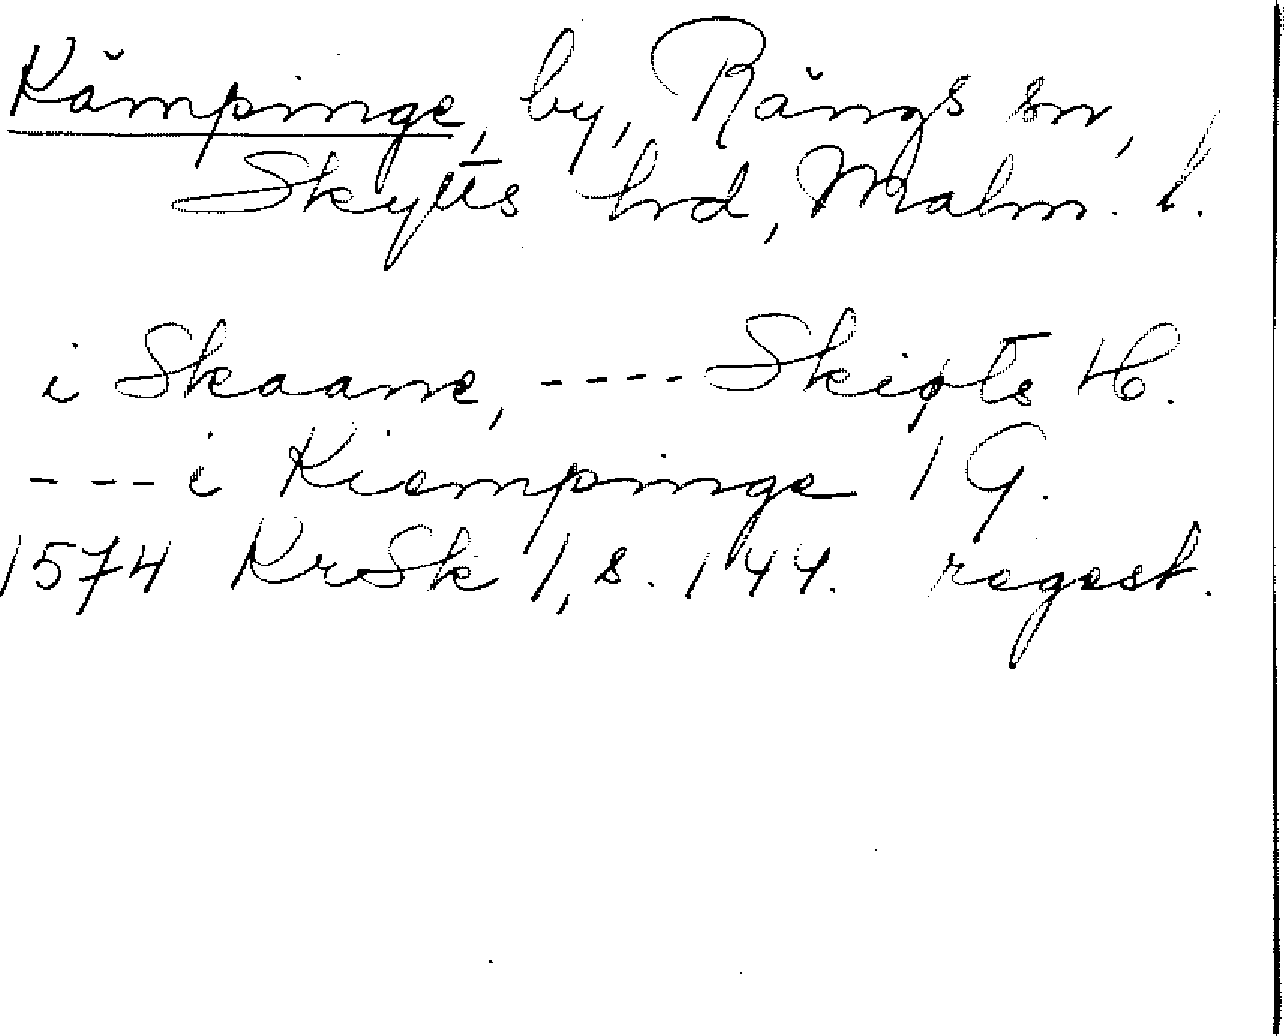 Kämpinge, by, Rängs sn,
Skytts hrd, Malm. l.
i Skaane, ---- Skigts H.
--- i Kiempinge 1 G.
1574 KrSk 1, s. 144. regest.